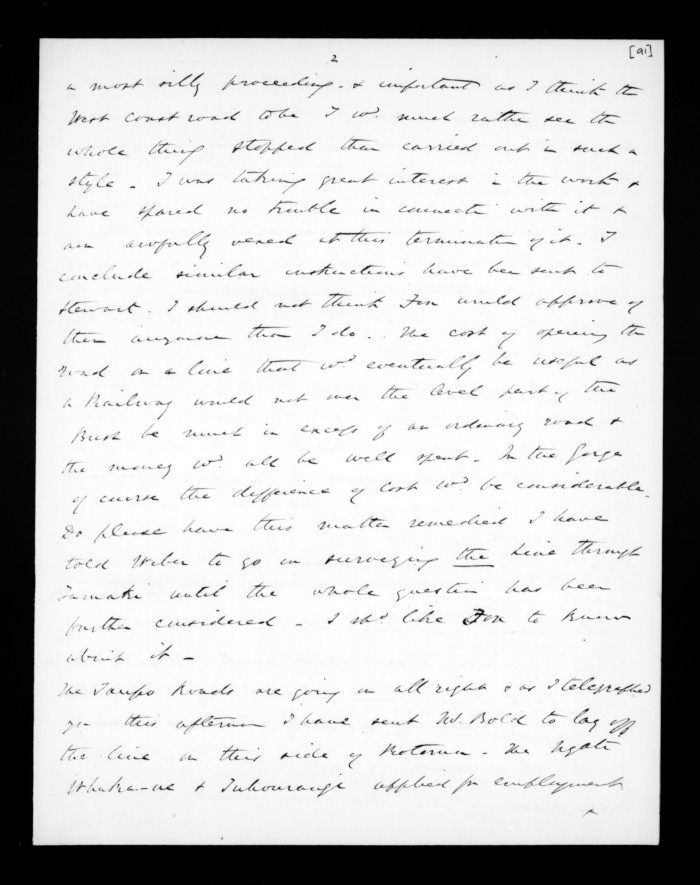 [91]
2
a most silly proceeding - & important as I think the
West Coast road to be I wd. much rather see the
whole thing stopped than carried out in such a
style - I was taking great interest in the work &
have spared no trouble in connectn with it &
am awfully vexed at this termination of it. I
conclude similar instructions have been sent to
Stewart. I should not think Fox would approve of
them anymore than I do. The cost of opening the
road on a line that wd. eventually be useful as
a Railway would not over the level part of the
Bush be much in excess of an ordinary road &
the money wd. all be well spent - In the Gorge
of course the difference of cost wd. be considerable.
Do please have this matter remedied I have
told Weber to go on surveying the Line through
Tamaki until the whole question has been
further considered - I shd. like Fox to know
about it -
The Taupo Roads are going on all right & as I telegraphed
you this afternoon I have sent Bold to lay off
the line on this side of Rotorua - The Ngati
Whaka-ue & Tuhourangi applied for employment